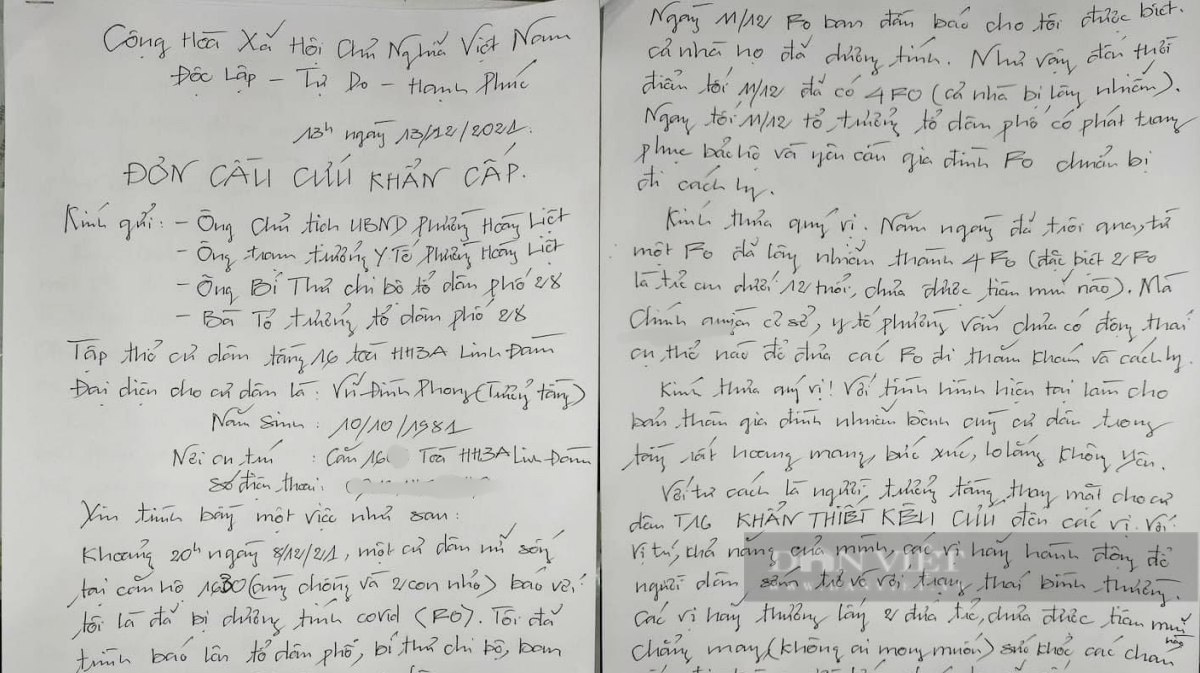 Cộng Hoà Xã Hội Chủ Nghĩa Việt Nam
Độc Lập - Tự Do - Hạnh Phúc
13h ngày 13/12/2021.
ĐƠN CẦU CỨU KHẨN CẤP.
Kính gửi: - Ông Chủ tịch UBND Phường Hoàng Liệt
- Ông trạm trưởng Y Tế Phường Hoàng Liệt
- Ông Bí Thư chi bộ tổ dân phố 28
- Bà Tổ trưởng tổ dân phố 28
Tập thể cư dân tầng 16 toà HH3A Linh Đàm
Đại diện cho cư dân là: Vũ Đình Phong (Trưởng tầng)
Năm Sinh: 10/10/1981
Nơi cư trú: Căn 16 Toà HH3A Linh Đàm
Số điện thoại:
Xin trình bày một việc như sau:
Khoảng 20h ngày 8/12/21, một cư dân nữ sống
tại căn hộ (cùng chồng và 2 con nhỏ) báo với
tôi là đã bị dương tính covid (F0). Tôi đã
trình báo lên tổ dân phố, bí thư chi bộ, ban
Ngày 11/12 F0 ban đầu báo cho tôi được biết.
cả nhà họ đã dương tính. Như vậy đến thời
điểm tối 11/12 đã có 4 F0 (cả nhà bị lây nhiễm).
Ngay tối 11/12 tổ trưởng tổ dân phố có phát trang
phục bảo hộ và yêu cầu gia đình F0 chuẩn bị
đi cách ly.
Kính thưa quý vị. Năm ngày đã trôi qua, từ
một F0 đã lây nhiễm thành 4 F0 (đặc biệt 2 F0
là trẻ em dưới 12 tuổi, chưa được tiêm mũi nào). Mà
Chính quyền cơ sở, y tế phường vẫn chưa có động thái
cụ thể nào để đưa các F0 đi thăm khám và cách ly.
Kính thưa quý vị! Với tình hình hiện tại làm cho
bản thân gia đình nhiễm bệnh cùng cư dân trong
tầng rất hoang mang, bức xúc, lo lắng không yên.
Với tư cách là người trưởng tầng thay mặt cho cư
dân T16 KHẨN THIẾT KÊU CỨU đến các vị. Với
vị trí, khả năng của mình, các vị hãy hành động để
người dân sớm trở về với trạng thái bình thường.
Các vị hãy thương lấy 2 đứa trẻ, chưa được tiêm mũi nào
chẳng may (không ai mong muốn) sức khỏe các cháu
DÂN VIỆT